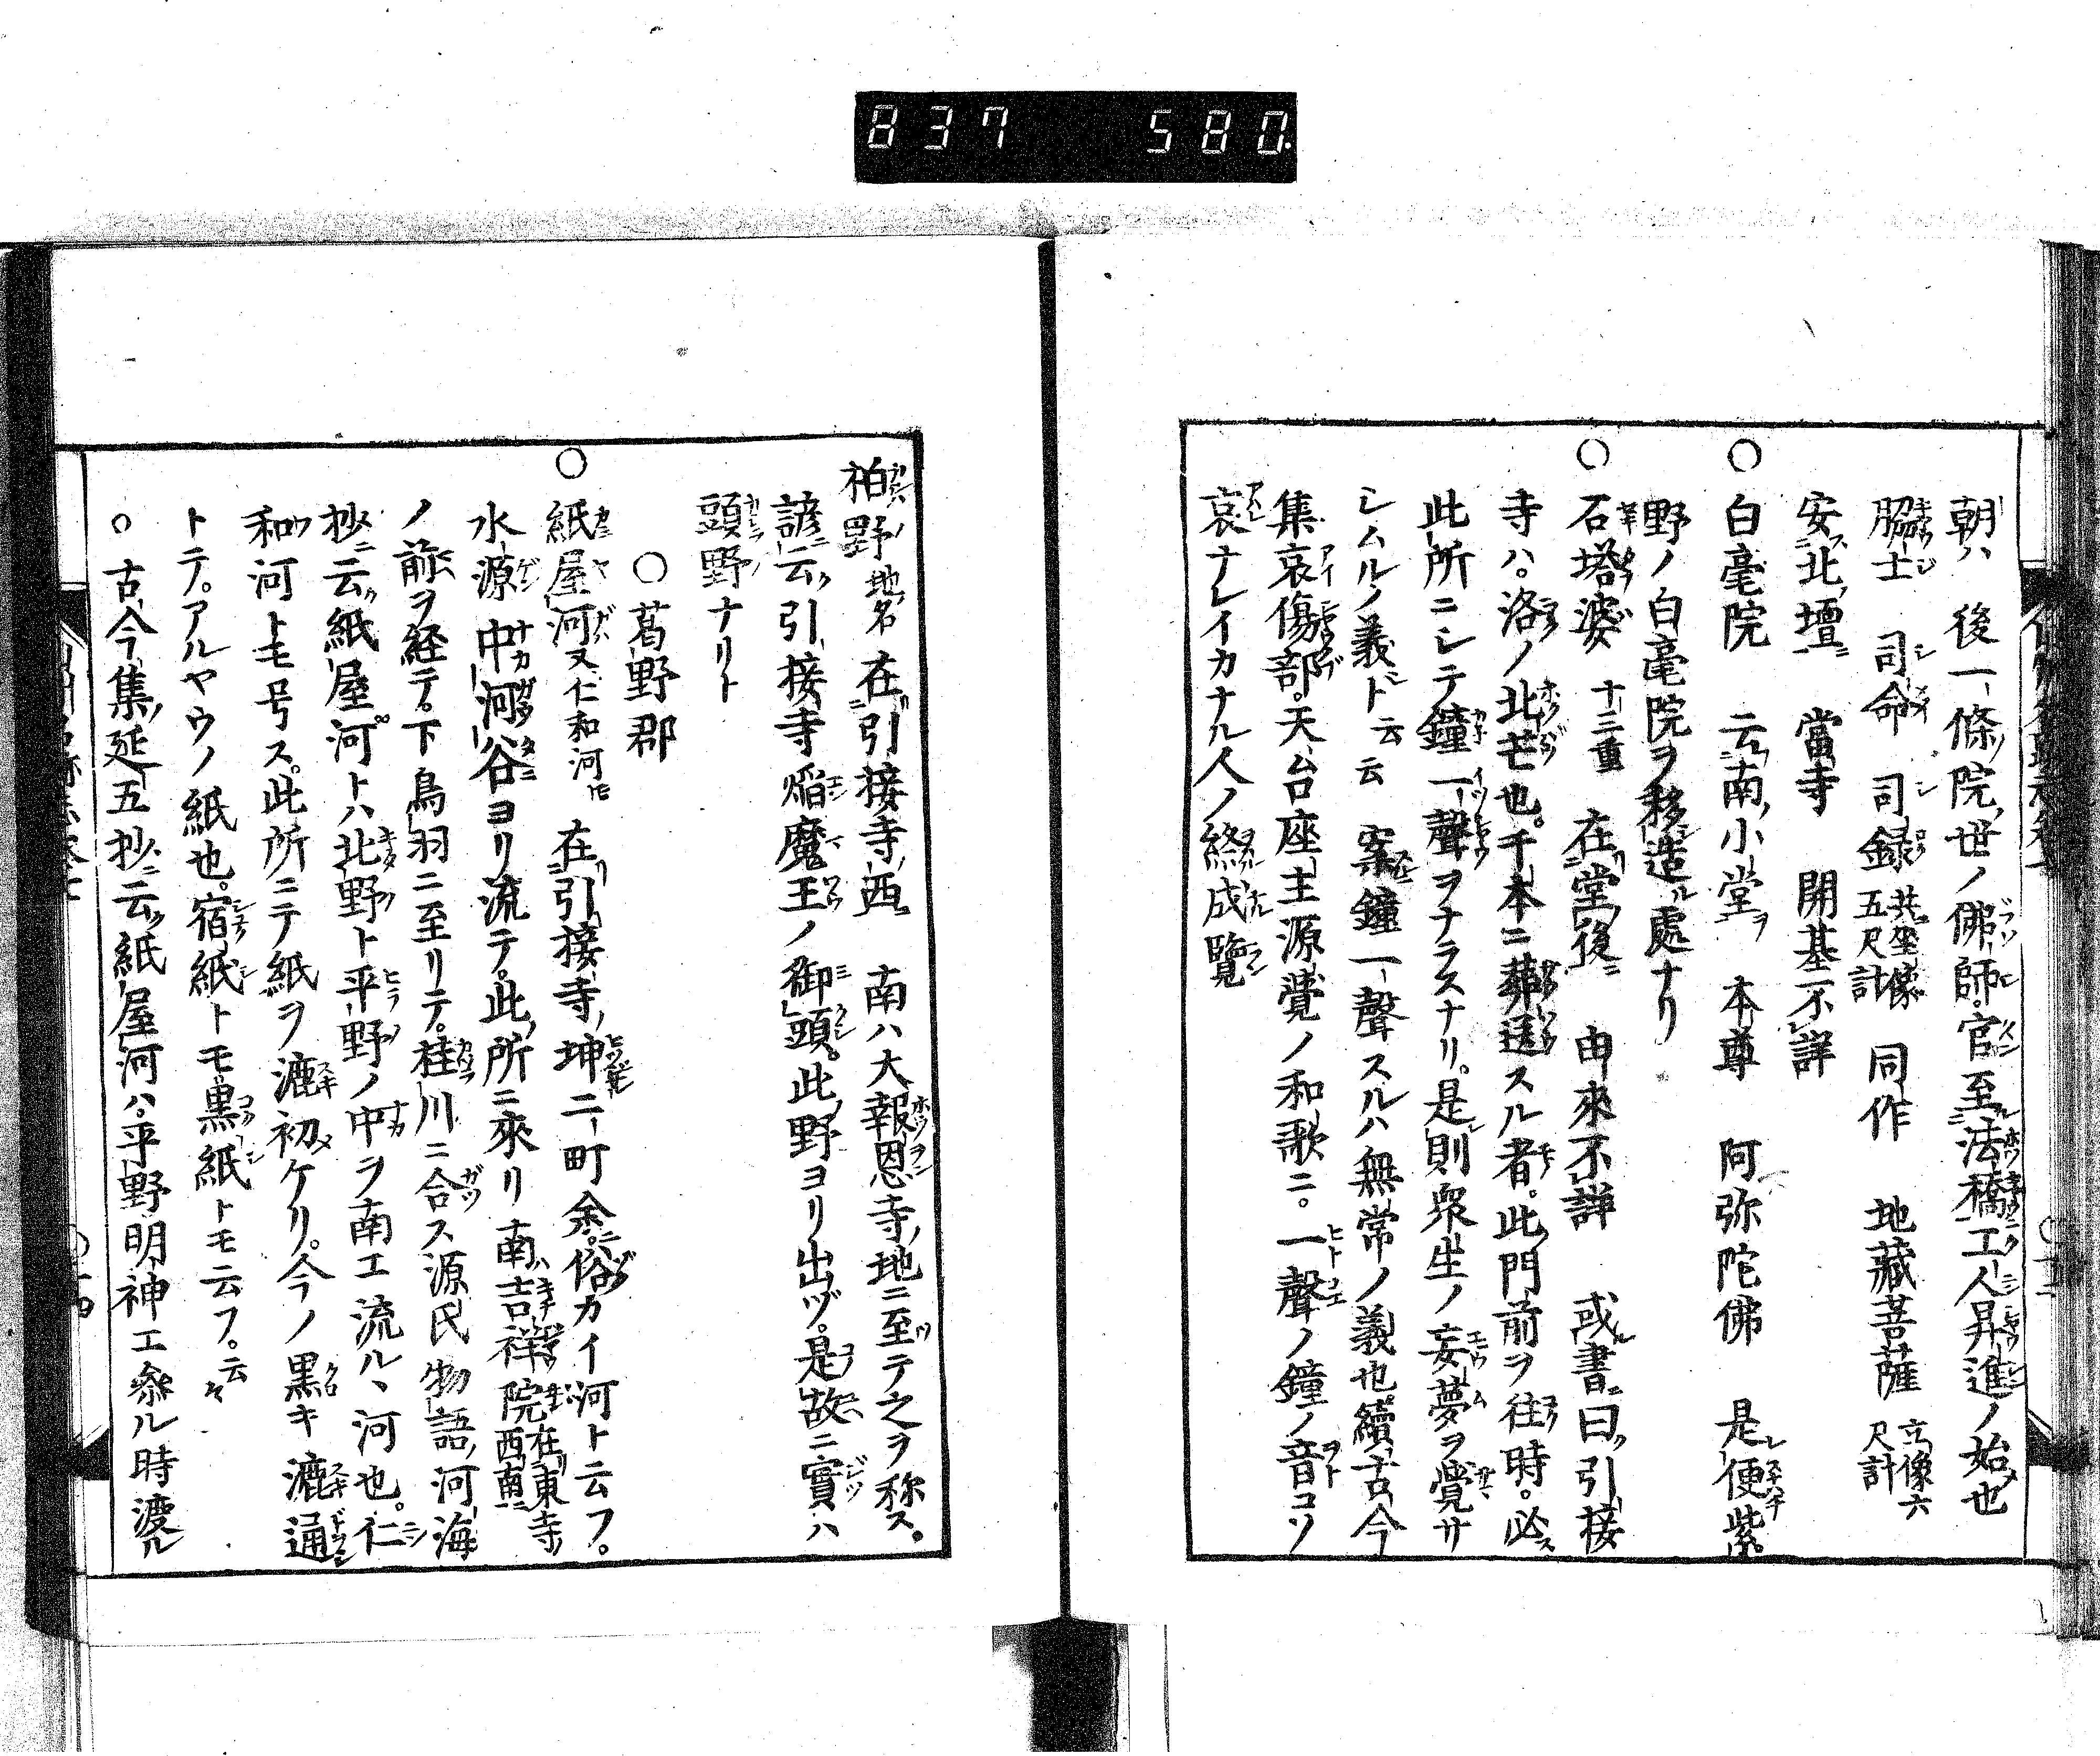 837 580
朝ハ 後一條院ノ世ノ佛師。官至法橋工人昇進ノ始也
脇士 司命 司録 共坐像五尺計 同作 地藏菩薩 立像六尺計
安北壇 當寺 開基不詳
○白毫院 云南小堂ヲ 本尊 阿弥陀佛 是便紫
野ノ白毫院ヲ移造ル處ナリ
○石塔婆 十二重 在堂後 由來不詳 或書曰引接
寺ハ。洛ノ北芒也。千本ニ葬送スル者。此門前ヲ往時。必ス
此所ニシテ鐘一聲ヲナラスナリ。是則衆生ノ妄夢ヲ覺サ
シムルノ義ト云云 案鐘一聲スルハ無常ノ義也。續古今
集哀傷部。天台座主源覺ノ和歌ニ。一聲ノ鐘ノ音コソ
哀ナレイカナル人ノ終成覽
柏野 地名 在引接寺西 南ハ大報恩寺ノ地ニ至テ之ヲ称ス。
諺云引接寺焔魔王ノ御頭。此野ヨリ出ヅ。是故ニ實ハ
頭野ナリト
○葛野郡
○紙屋河 又仁和河ト 在引接寺ノ坤二町余。俗カイ河ト云フ。
水源中河谷ヨリ流テ。此所ニ來リ南吉祥院 在東寺西南
ノ前ヲ経テ。下鳥羽ニ至リテ。桂川ニ合ス源氏物語ノ河海
抄云紙屋河トハ北野ト平野ノ中ヲ南エ流ル、河也。仁
和河トモ号ス。此所ニテ紙ヲ漉初ケリ。今ノ黒キ漉通
トテ。アルヤウノ紙也。宿紙トモ黒紙トモ云フ。云々
○古今集延五抄云紙屋河ハ。平野明神エ参ル時渡ル